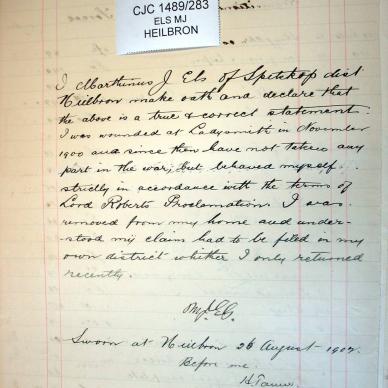 CJC 1489/283
ELS MJ
HEILBRON
I Marthinus J Els of Spitzkop dist
Heilbron make oath and declare that
the above is a true & correct statement.
I was wounded at Ladysmith in November
1900 and since then have not taken any
part in the war; but behaved myself
strictly in accordance with the terms of
Lord Roberts Proclamation. I was
removed from my home and under-
stood my claim had to be filed in my
own district whether I only returned
recently.
Sworn at Heilbron 26 August 1902.
Before me